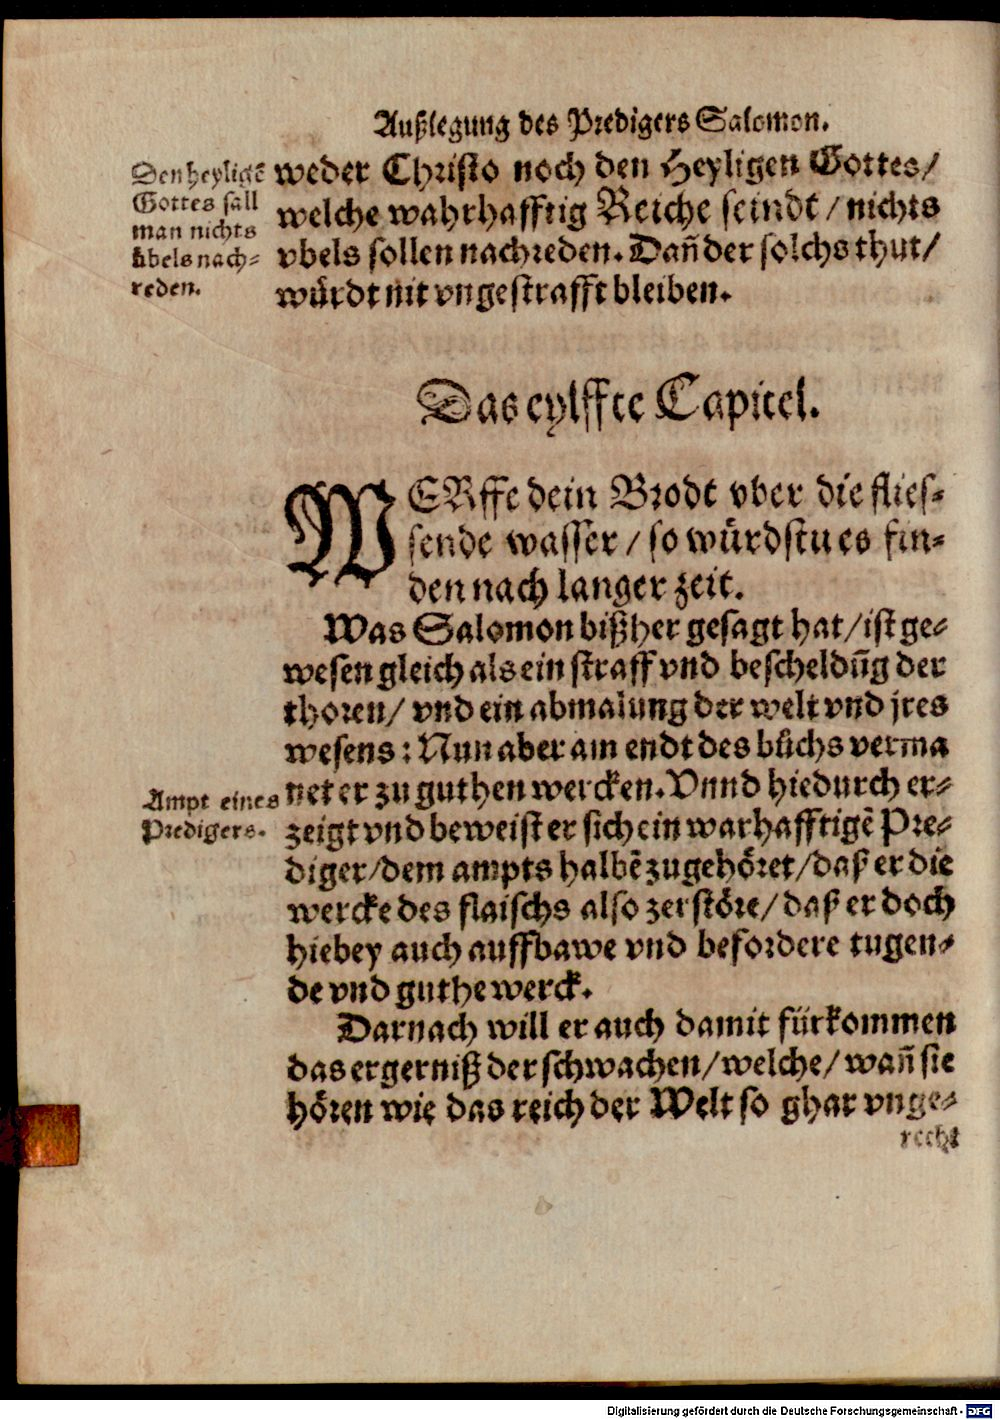 Außlegung des Predigers Salomon.
Den heyligẽ
Gottes sall
man nichts
übels nach-
reden.
weder Christo noch den Heyligen Gottes/
welche wahrhafftig Reiche seindt / nichts
vbels sollen nachreden. Dañ der solchs thut/
würdt nit vngestrafft bleiben.
Das eylffte Capitel.
WERffe dein Brodt vber die flies-
sende wasser / so würdstu es fin-
den nach langer zeit.
Was Salomon bißher gesagt hat/ist ge-
wesen gleich als ein straff vnd bescheldũg der
thoren/ vnd ein abmalung der welt vnd jres
wesens: Nun aber am endt des bůchs verma
net er zu guthen wercken. Vnnd hiedurch er-
Ampt eines
Predigers.
zeigt vnd beweist er sich ein warhafftigẽ Pre-
diger/dem ampts halbẽ zugehöret/daß er die
wercke des flaischs also zerstöre/daß er doch
hiebey auch auffbawe vnd befordere tugen-
de vnd guthe werck.
Darnach will er auch damit fürkommen
das ergerniß der schwachen/welche/ wañ sie
hören wie das reich der Welt so ghar vnge-
recht
Digitalisierung gefördert durch die Deutsche Forschungsgemeinschaft - DFG